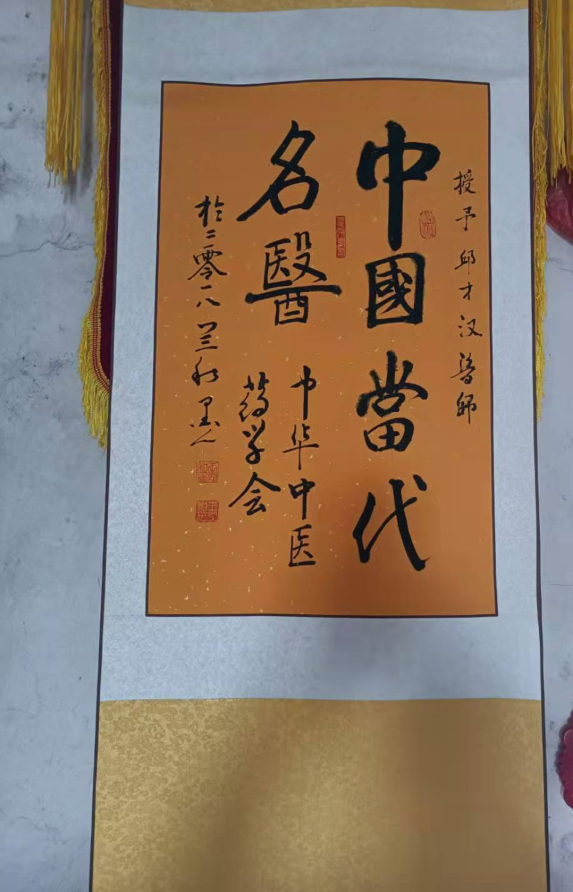 授予邱才汉醫師
中國當代
名醫
中华中医
药学会
於二零一八